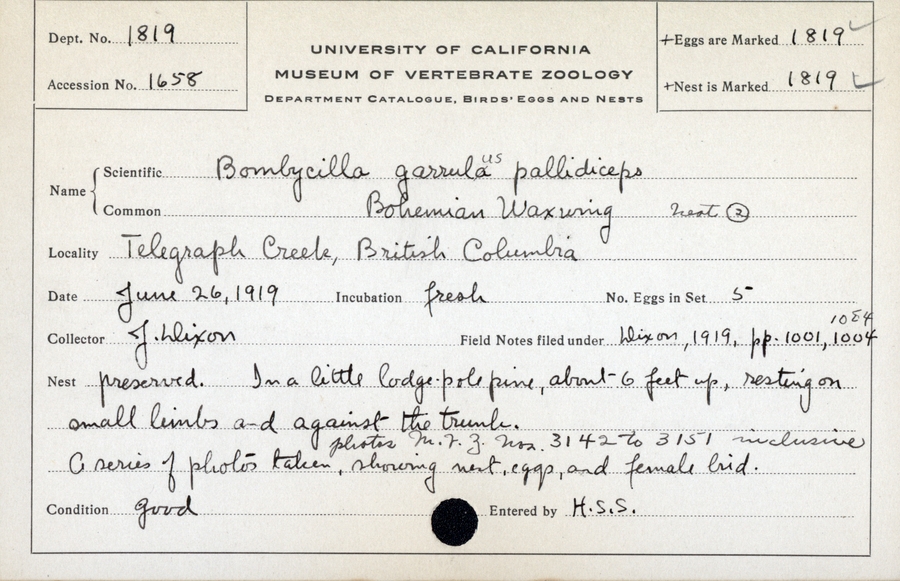 Dept. No. 1819
Accession No. 1658
UNIVERSITY OF CALIFORNIA
MUSEUM OF VERTEBRATE ZOOLOGY
DEPARTMENT CATALOGUE, BIRDS' EGGS AND NESTS
+Eggs are Marked 1819
+Nest is Marked 1819
Name
Scientific Bombycilla garrulaus pallidiceps
Common Bohemian Waxwing nest 2
Locality Telegraph Creek, British Columbia
Date June 26, 1919 Incubation fresh No. Eggs in Set 5
1084
Collector J. Dixon Field Notes filed under Dixon, 1919, pp. 1001, 1004
Nest preserved. In a little lodge-pole pine, about 6 feet up, resting on
small limbs and against the trunk.
photos M.V.Z. Nos. 3142 to 3151 inclusive
A series of photos taken, showing nest, eggs, and female bird.
Condition good Entered by H.S.S.